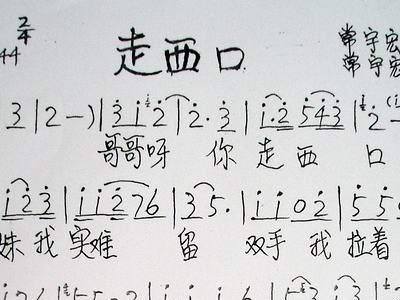 2/4
走西口
44
常宇宏
3|2-)|3i2|2·3|i·2543|2
哥哥呀 你走西口
i23|ii276|35·|ii02|55
妹我实难 留 双手我拉着